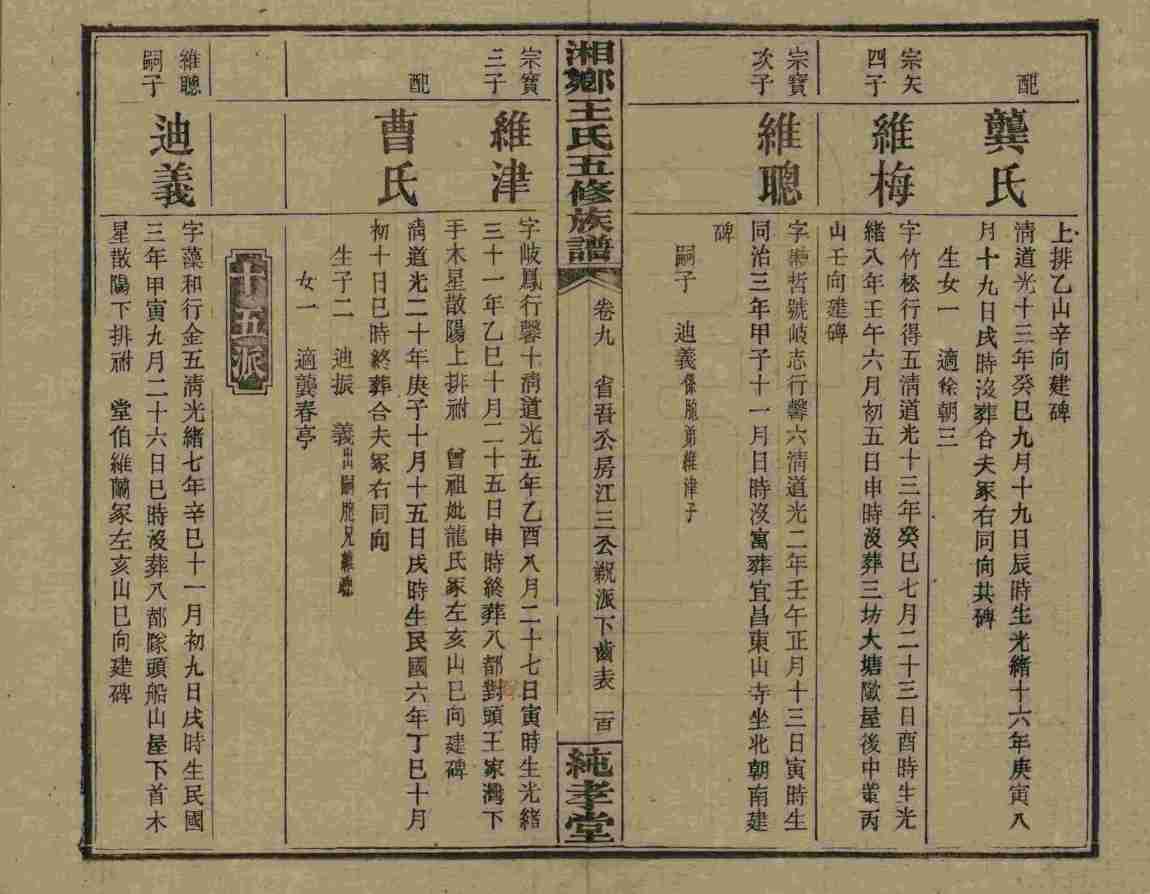 上排乙山辛向建碑
配
龔氏
淸道光十三年癸巳九月十九日辰時生光緒十六年庚寅八
月十九日戌時沒葬合夫冢右同向共碑
生女一 適徐朝三
宗矢
四子
維梅
字竹松行得五淸道光十三年癸巳七月二十三日酉時生光
緒八年壬午六月初五日申時沒葬三坊大塘 屋後中 丙
山壬向建碑
宗寶
次子
維聰
字 哲號岐志行馨六淸道光二年壬午正月十三日寅時生
同治三年甲子十一月日時沒寓葬宜昌東山寺坐北朝南建
碑
嗣子 迪義係胞弟維津子
湘鄉王氏五修族譜
卷九 省吾公房江三公 派下齒表 一百
純孝堂
宗寶
三子
維津
字岐鳳行馨十淸道光五年乙酉八月二十七日寅時生光緖
三十一年乙巳十月二十五日申時終葬八都對頭王家灣下
手木星散陽上排祔 曾祖妣龍氏冢左亥山巳向建碑
配
曹氏
淸道光二十年庚子十月十五日戌時生民國六年丁巳十月
初十日巳時終葬合夫冢右同向
生子二 迪振 義出嗣胞兄維聰
女一 適龔春亭
十五派
維聰
嗣子
迪義
字藻和行金五淸光緒七年辛巳十一月初九日戌時生民國
三年甲寅九月二十六日巳時沒葬八都 頭船山屋下首木
星散陽下排祔 堂伯維蘭冢左亥山巳向建碑